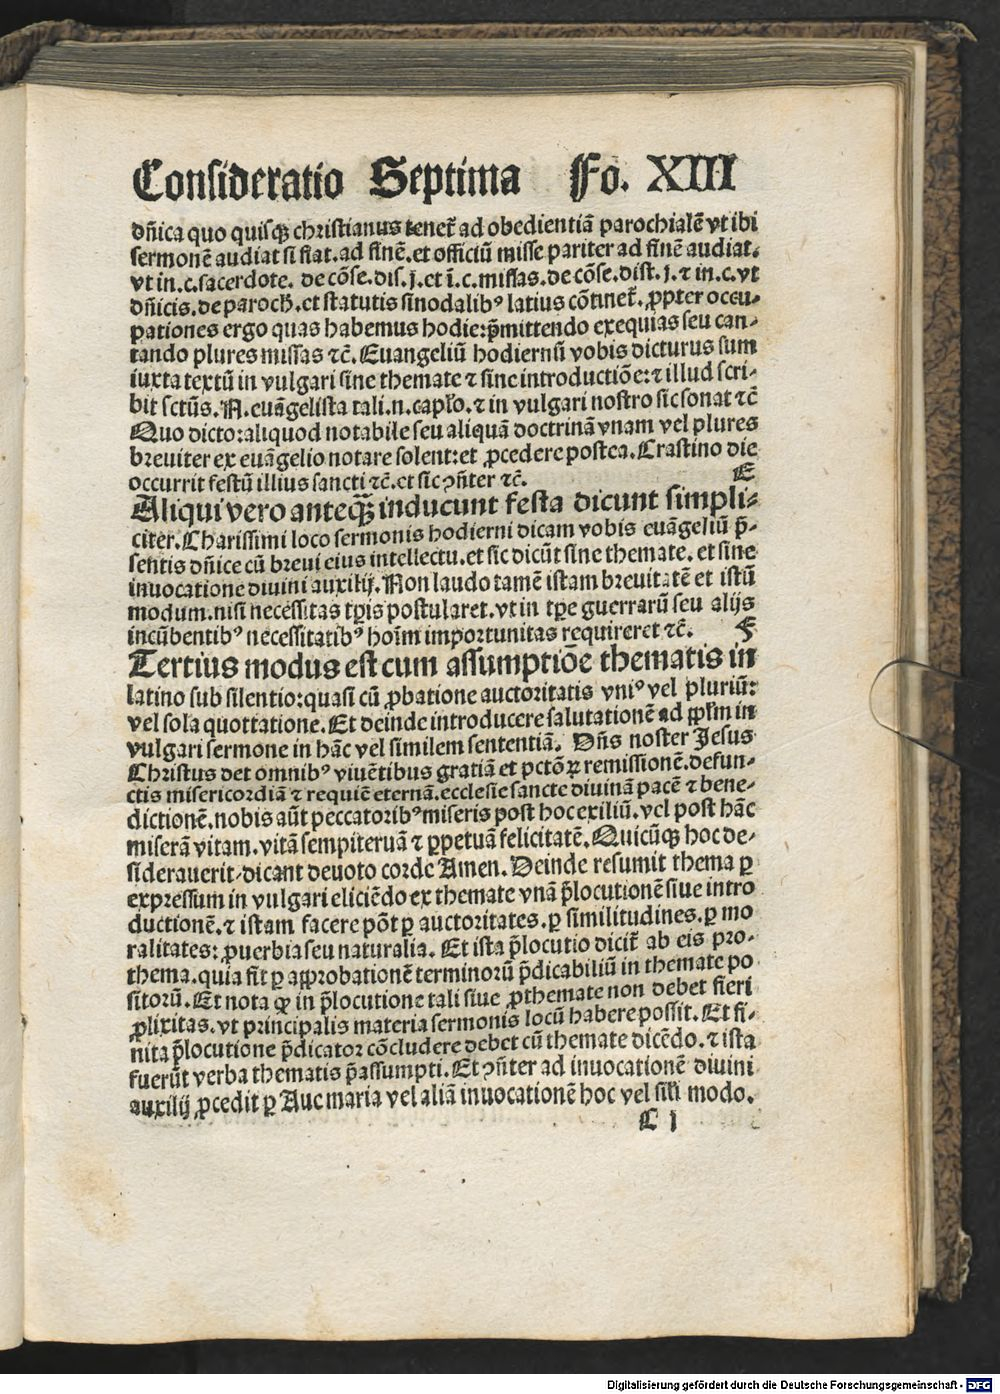 Consideratio Septima Fo. XIII
dn̄ica quo quisqꝫ christianus tenet᷑ ad obedientiā parochialē vt ibi
sermonē audiat si fiat.ad finē.et officiū misse pariter ad finē audiat.
vt in.c.sacerdote. de cōse.dis.j.et ī.c.missas.de cōse.dist.j.⁊ in.c.vt
dn̄icis.de paroch̄.et statutis sinodalibꝰ latius cōtinet᷑. ꝓpter occu-
pationes ergo quas habemus hodie:p̄mittendo exequias seu can-
tando plures missas ⁊c̄. Euangeliū hodiernū vobis dicturus sum
iuxta textū in vulgari sine themate ⁊ sine introductiōe:⁊ illud scri-
bit sctūs.N.euāgelista tali.n.capło.⁊ in vulgari nostro sic sonat ⁊c̄
Quo dicto:aliquod notabile seu aliquā doctrinā vnam vel plures
breuiter ex euāgelio notare solent:et ꝓcedere postea.Crastino die
occurrit festū illius sancti ⁊c̄.et sic ꝯn̄ter ⁊c̄. E
Aliqui vero anteq̄ꝫ inducunt festa dicunt simpli-
citer.Charissimi loco sermonis hodierni dicam vobis euāgeliū p̄-
sentis dn̄ice cū breui eius intellectu.et sic dicūt sine themate. et sine
inuocatione diuini auxilij.Non laudo tamē istam breuitatē et istū
modum.nisi necessitas tꝑis postularet.vt in tꝑe guerrarū seu alijs
incūbentibꝰ necessitatibꝰ hoīm importunitas requireret ⁊c̄. F
Tertius modus est cum assumptiōe thematis in
latino sub silentio:quasi cū ꝓbatione auctoritatis vniꝰ vel pluriū:
vel sola quottatione. Et deinde introducere salutationē ad ppłm in
vulgari sermone in hāc vel similem sententiā. Dn̄s noster Jesus
Christus det omnibꝰ viuētibus gratiā et pctōꝝ remissionē.defun-
ctis misericordiā ⁊ requiē eternā.ecclesie sancte diuinā pacē ⁊ bene-
dictionē.nobis aūt peccatoribꝰ miseris post hoc exiliū.vel post hāc
miserā vitam.vitā sempiteruā ⁊ ꝑpetuā felicitatē.Quicūqꝫ hoc de-
siderauerit/dicant deuoto corde Amen. Deinde resumit thema ꝑ
expressum in vulgari eliciēdo ex themate vnā p̄locutionē siue intro
ductionē.⁊ istam facere pōt ꝑ auctoritates.ꝑ similitudines.ꝑ mo
ralitates:ꝓuerbia seu naturalia. Et ista p̄locutio dicit᷑ ab eis pro-
thema.quia fit ꝑ approbationē terminorū p̄dicabiliū in themate po
sitorū. Et nota ꝙ in p̄locutione tali siue ꝓthemate non debet fieri
ꝓlixitas.vt principalis materia sermonis locū habere possit. Et fi-
nita p̄locutione p̄dicator cōcludere debet cū themate dicēdo.⁊ ista
fuerūt verba thematis p̄assumpti.Et ꝯn̄ter ad inuocationē diuini
auxilij ꝓcedit ꝑ Aue maria vel aliā inuocationē hoc vel sīli modo.
C j
Digitalisierung gefördert durch die Deutsche Forschungsgemeinschaft - DFG